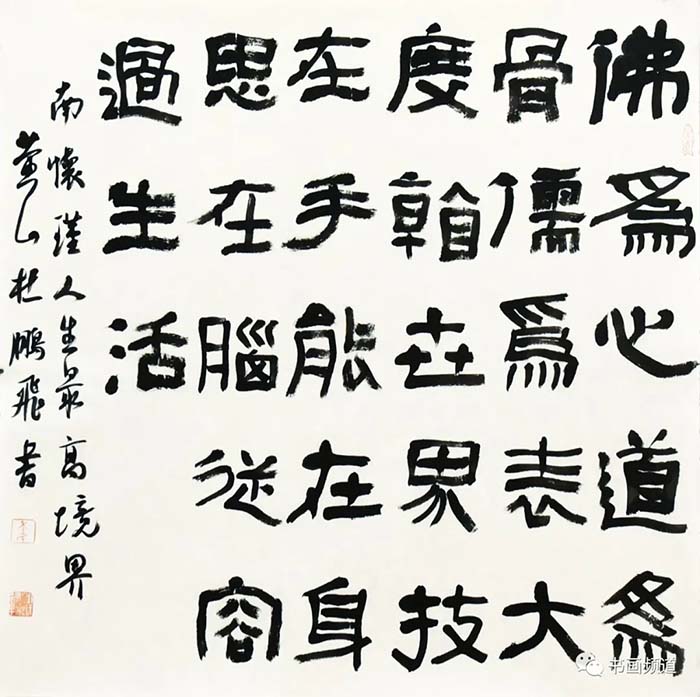 佛為心道為
骨儒為表大
度看世界技
在手能在身
思在腦從容
過生活
南懷瑾人生最高境界
黃山杜鵬飛書
书画频道